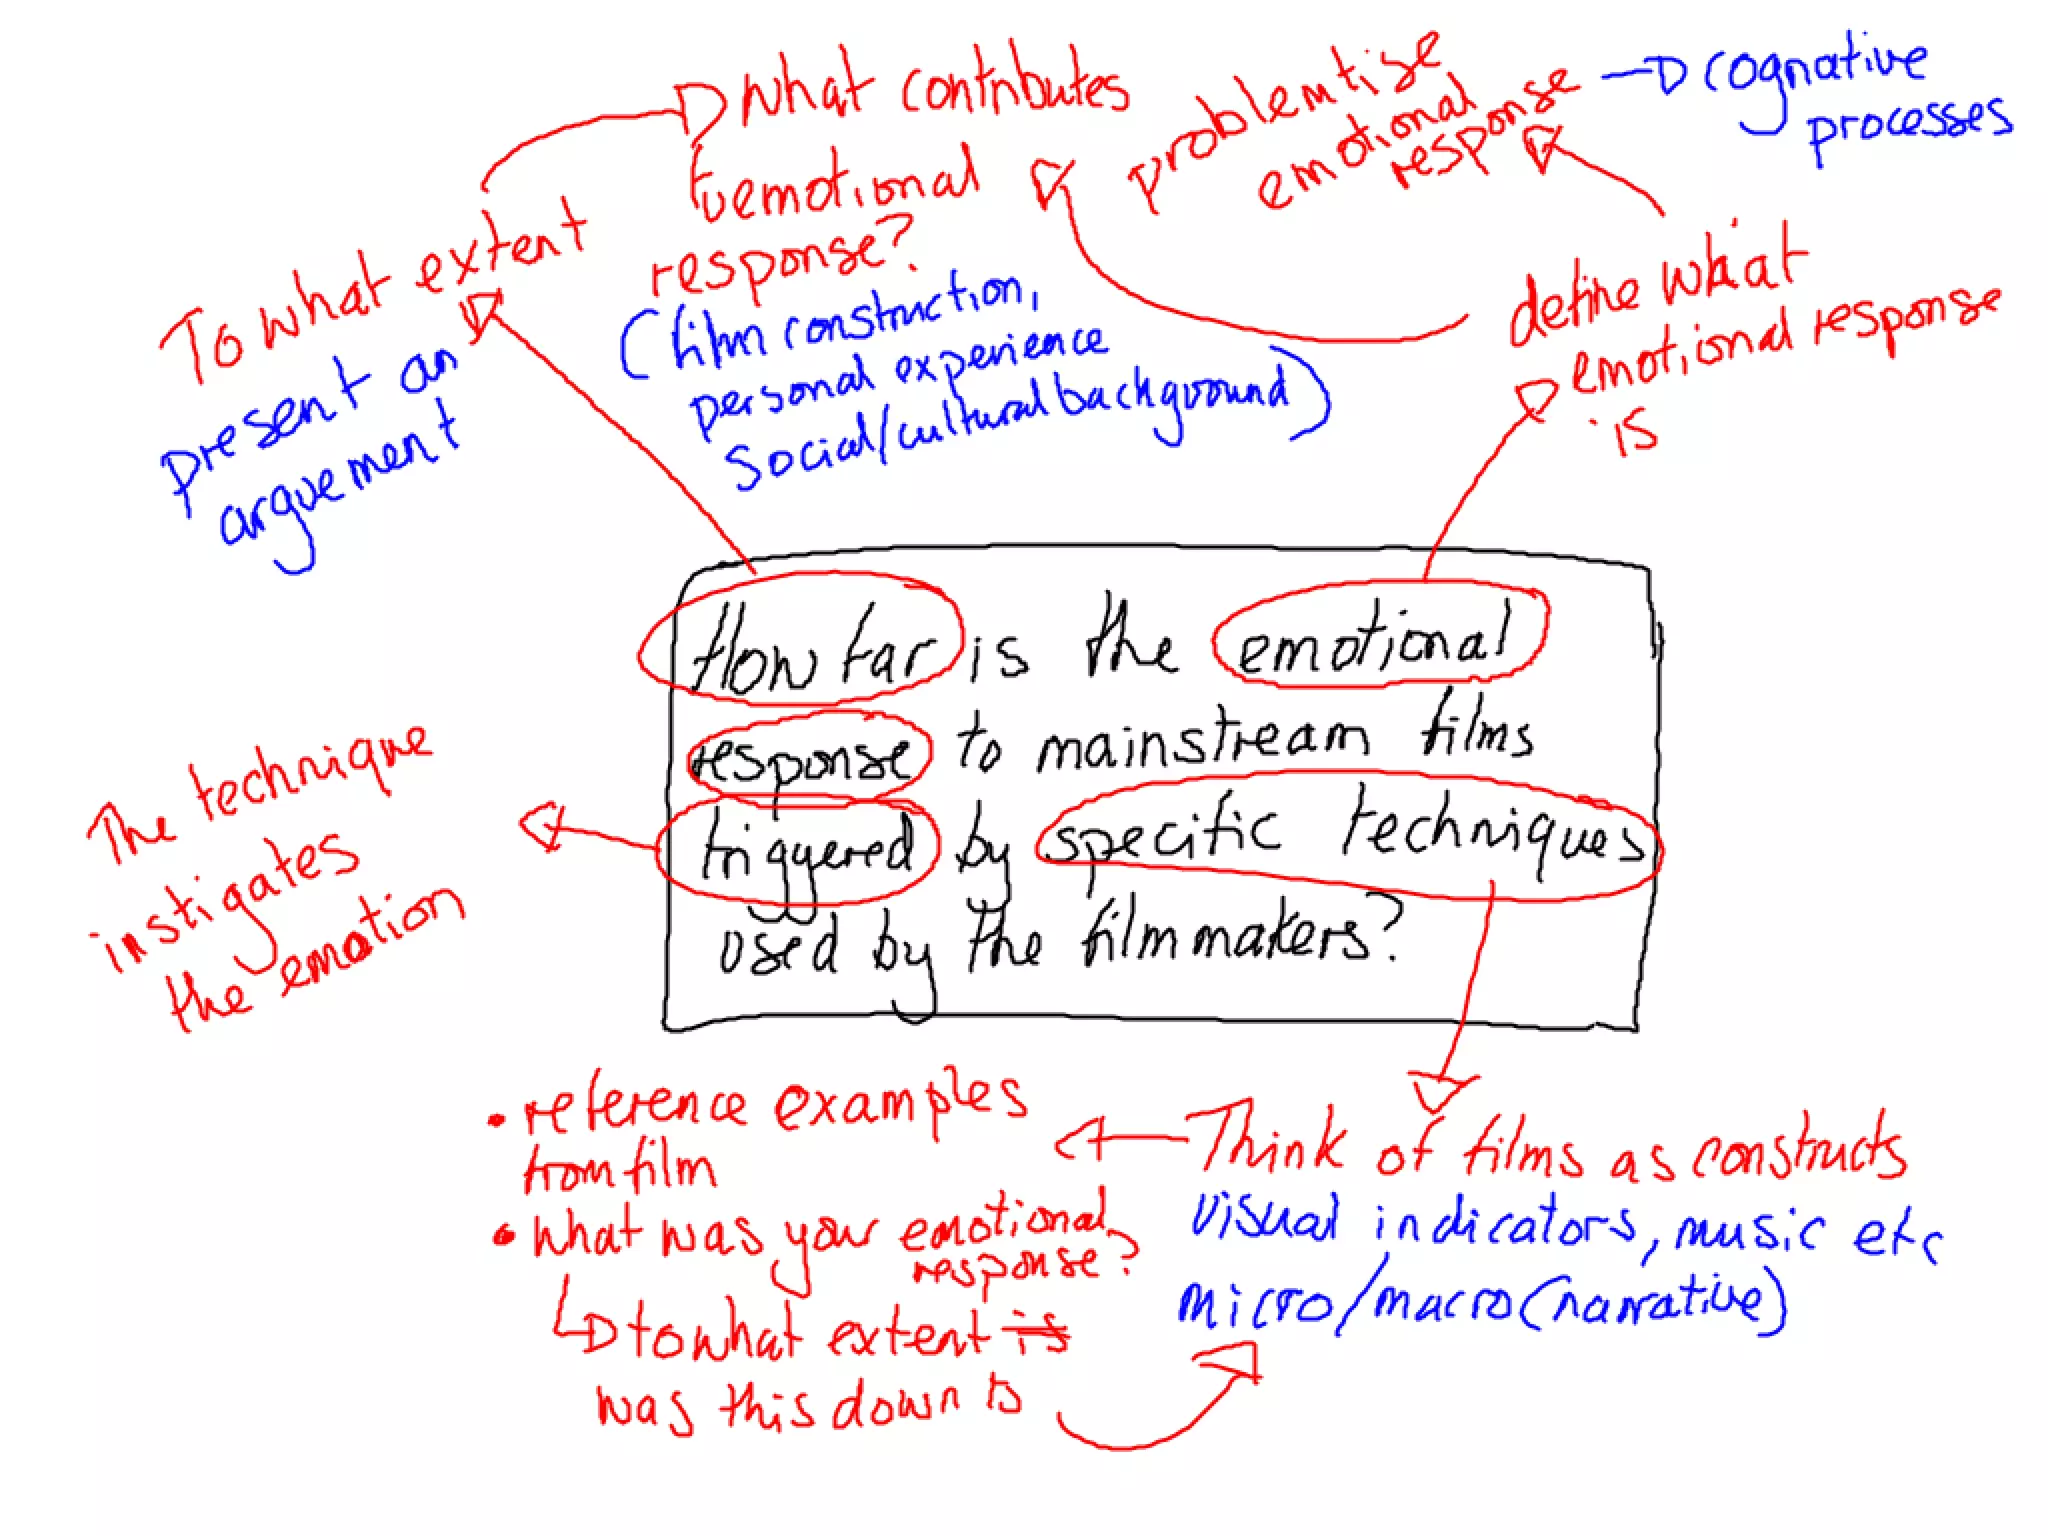 What contributes
to emotional
response?
(film construction,
personal experience
social/cultural background)
problemtise
emotional
response
cognative
processes
To what extent
present an
arguement
define what
emotional response
is
How far is the emotional
response to mainstream films
triggered by specific techniques
used by the filmmakers?
The technique
instigates
the emotion
• reference examples
from film
• what was your emotional
response?
to what extent is
was this down to
Think of films as constructs
visual indicators, music etc
micro/macro (narrative)